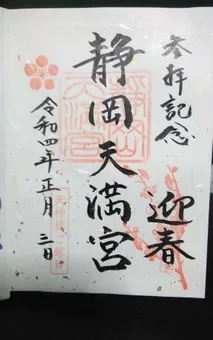 参拝記念
迎春
静岡天満宮
令和四年正月三日